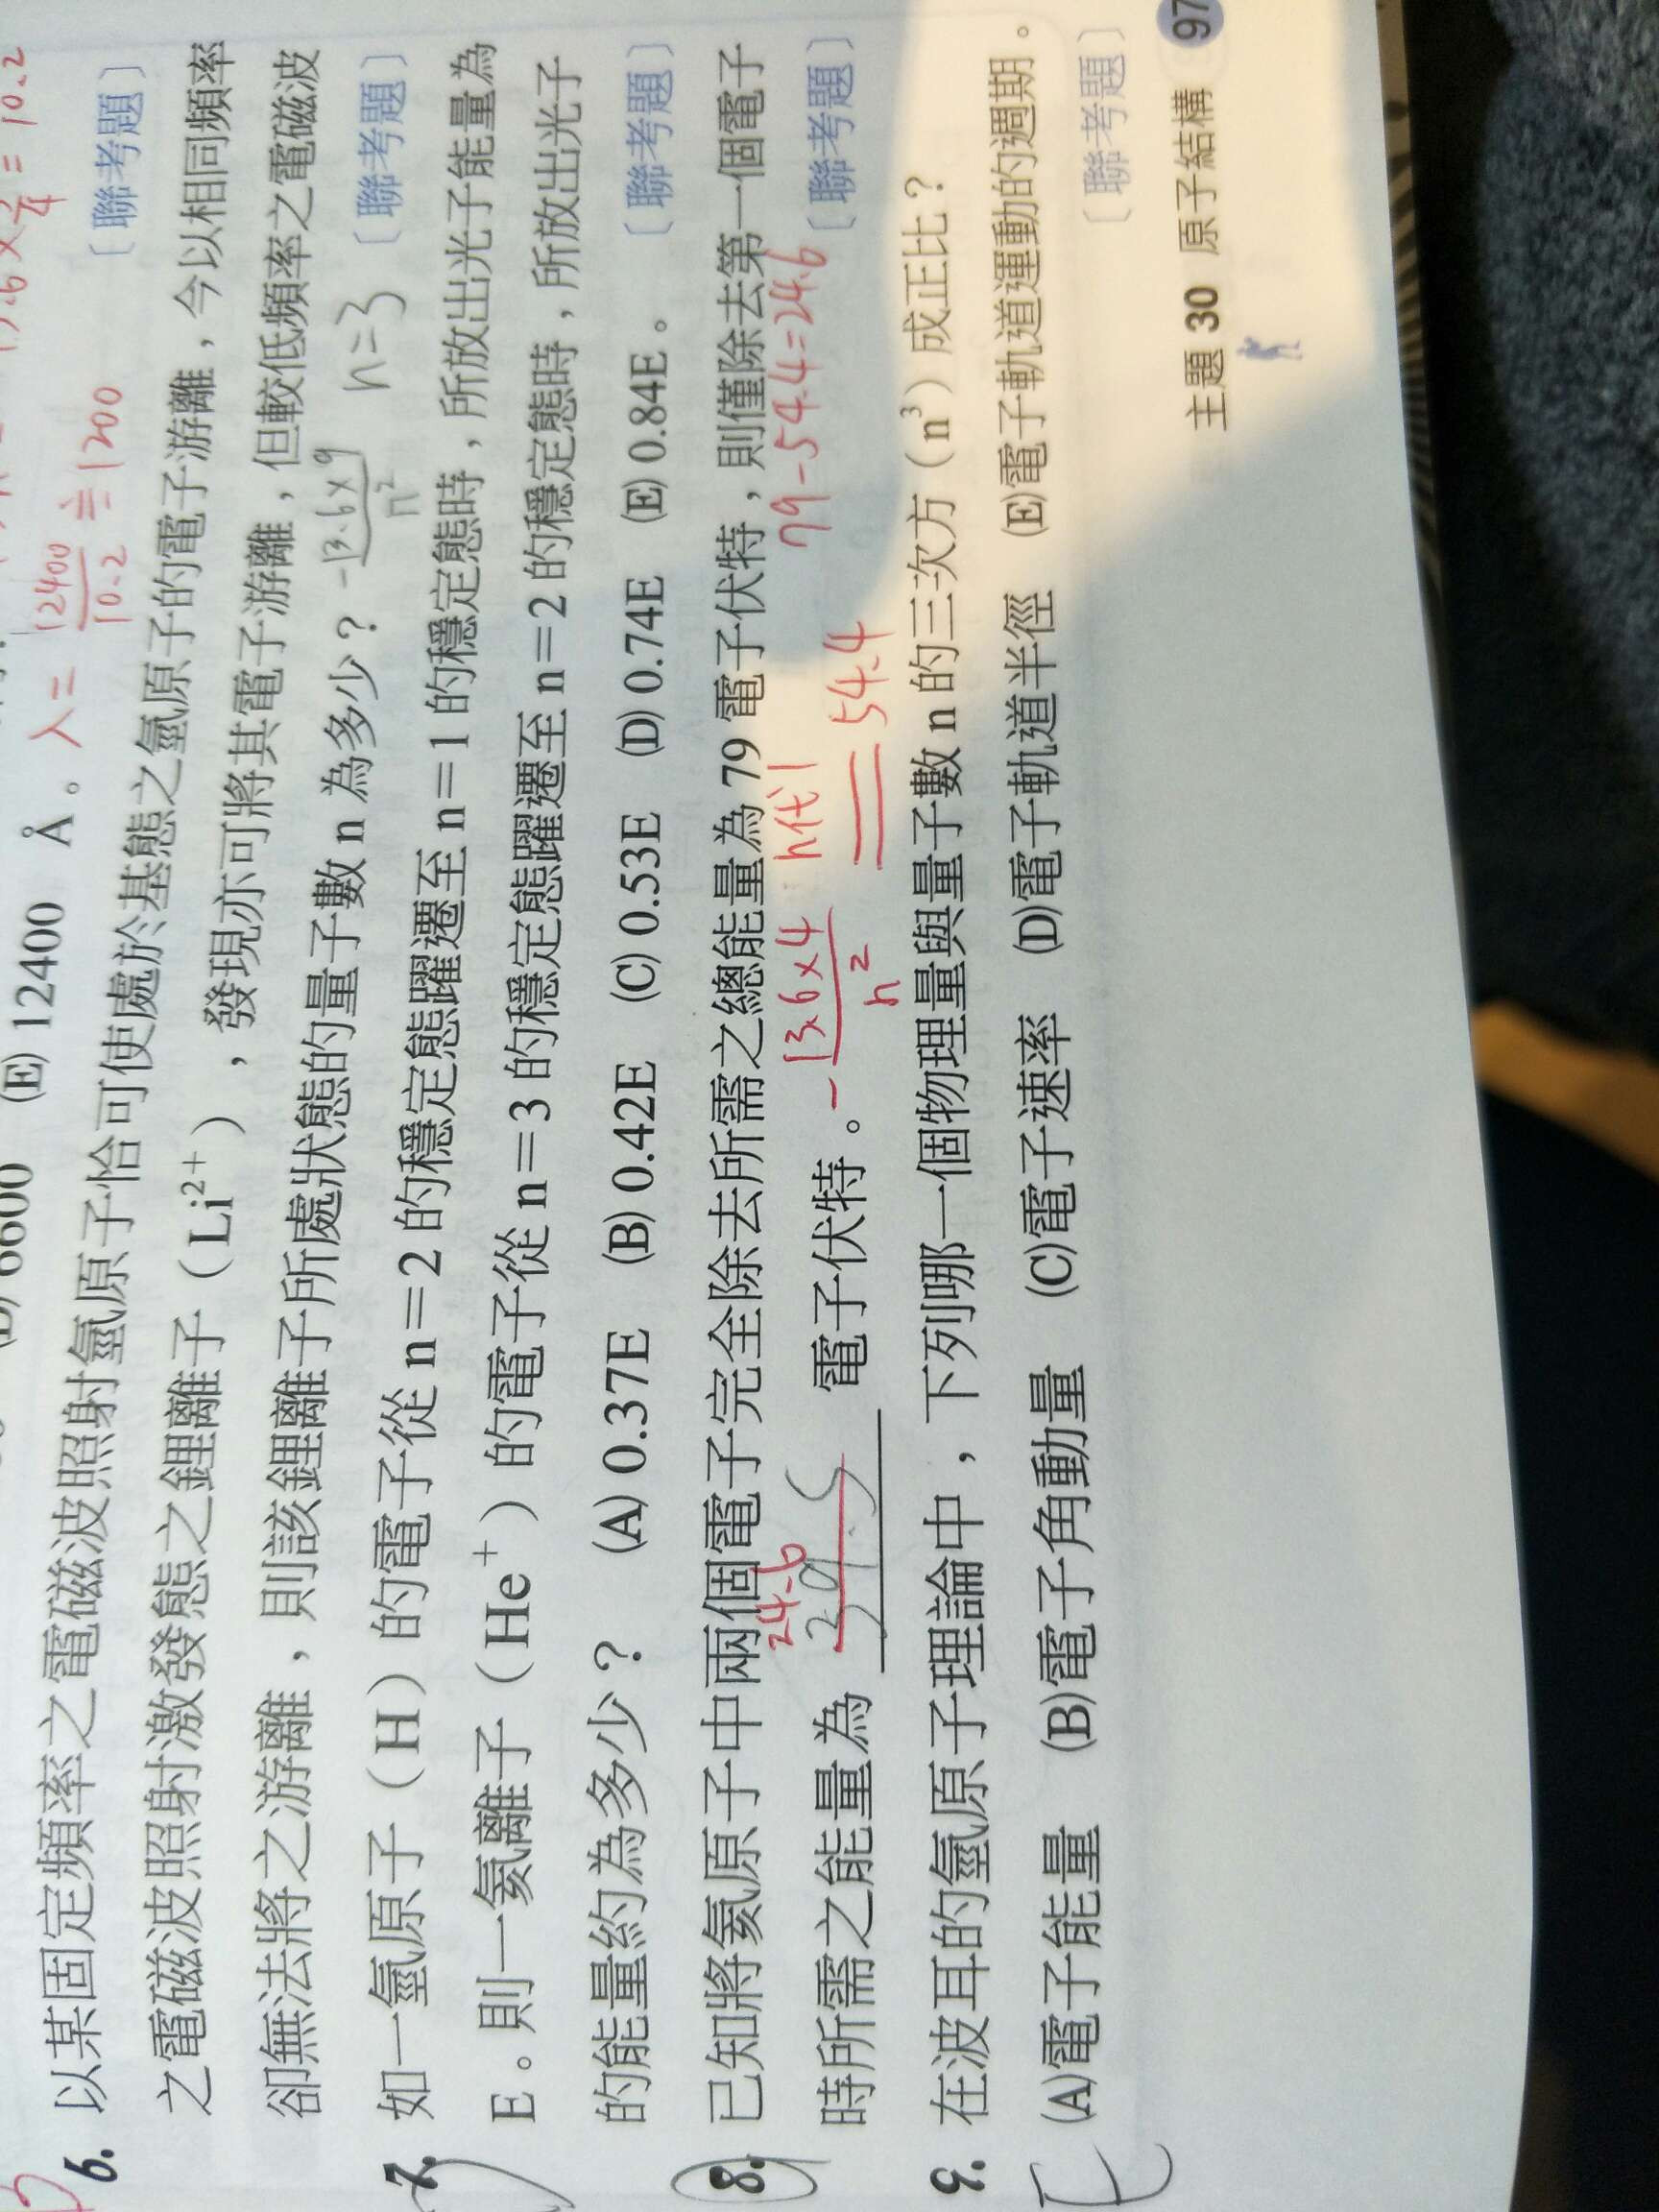 (E) 12400 Å。 λ= 12400/10.2 ≒ 1200
〔聯考題〕
6. 以某固定頻率之電磁波照射氫原子恰可使處於基態之氫原子的電子游離，今以相同頻率
之電磁波照射激發態之鋰離子（Li²⁺），發現亦可將其電子游離，但較低頻率之電磁波
卻無法將之游離，則該鋰離子所處狀態的量子數 n 為多少？ -13.6×9/n² n=3 〔聯考題〕
7. 如一氫原子（H）的電子從 n=2 的穩定態躍遷至 n=1 的穩定態時，所放出光子能量為
E。則一氦離子（He⁺）的電子從 n=3 的穩定態躍遷至 n=2 的穩定態時，所放出光子
的能量約為多少？ (A) 0.37E (B) 0.42E (C) 0.53E (D) 0.74E (E) 0.84E。 〔聯考題〕
8. 已知將氦原子中兩個電子完全除去所需之總能量為 79 電子伏特，則僅除去第一個電子
24.6 n代1 79-54.4=24.6
時所需之能量為 39.5 電子伏特。 -13.6×4/n² = 54.4 〔聯考題〕
9. 在波耳的氫原子理論中，下列哪一個物理量與量子數 n 的三次方（n³）成正比？
E (A)電子能量 (B)電子角動量 (C)電子速率 (D)電子軌道半徑 (E)電子軌道運動的週期。
〔聯考題〕
主題 30 原子結構 97